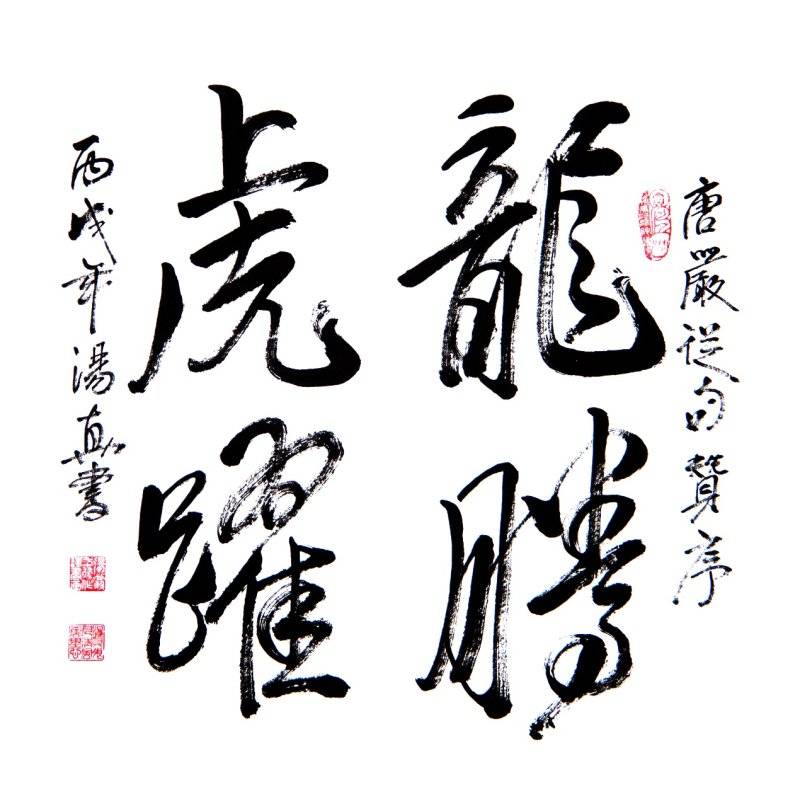 唐嚴從句贊亭
龍騰
虎躍
丙戌年湯真書